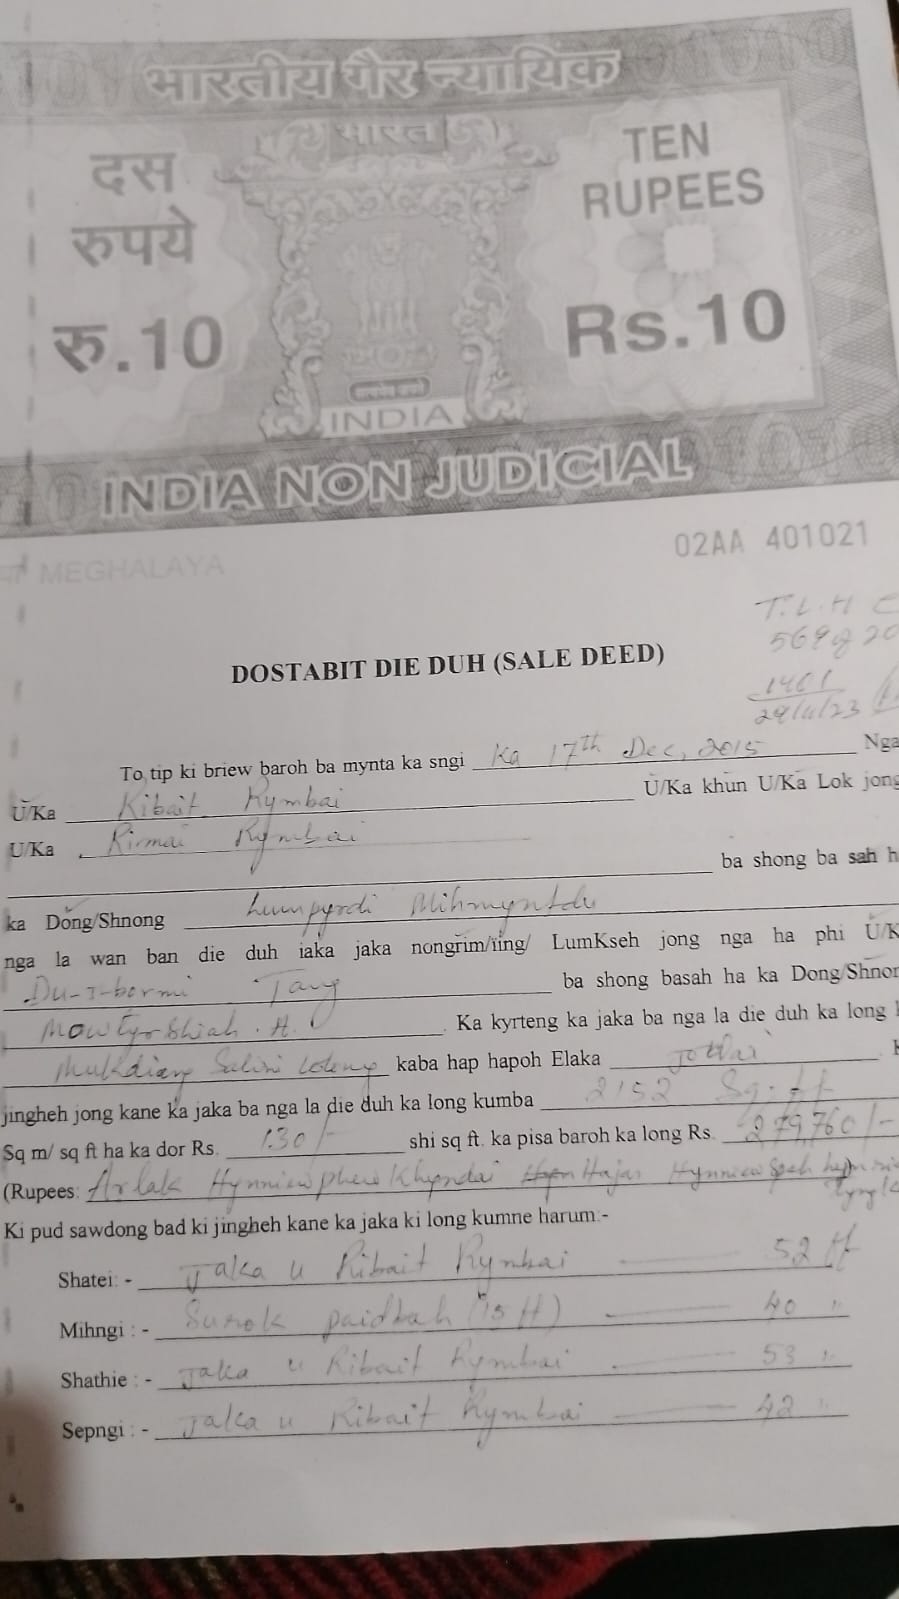 भारतीय गैर न्यायिक
भारत
दस
रुपये
रु.10
TEN
RUPEES
Rs.10
सत्यमेव जयते
INDIA
INDIA NON JUDICIAL
MEGHALAYA
02AA 401021
T.L.H
569 of 20
1461
24/4/23
DOSTABIT DIE DUH (SALE DEED)
To tip ki briew baroh ba mynta ka sngi Ka 17th Dec, 2015 Nga
U/Ka Ribait Rymbai U/Ka khun U/Ka Lok jong
U/Ka Rirmai Rymbai
ba shong ba sah h
ka Dong/Shnong Lumpyrdi Mihmyntdu
nga la wan ban die duh iaka jaka nongrim/iing/ LumKseh jong nga ha phi U/K
Du-I-bormi Tang ba shong basah ha ka Dong/Shnon
Mowtyrshiah . H. . Ka kyrteng ka jaka ba nga la die duh ka long
Mukdiang Salini Loleng kaba hap hapoh Elaka Jowai .
jingheh jong kane ka jaka ba nga la die duh ka long kumba 2152 Sq. ft
Sq m/ sq ft ha ka dor Rs. 130/- shi sq ft. ka pisa baroh ka long Rs. 279,760/-
(Rupees: Ar lak Hynniew phew Khyndai Hajar Hynniew Speh
Ki pud sawdong bad ki jingheh kane ka jaka ki long kumne harum:-
Shatei: - Jaka u Ribait Rymbai 52 ft
Mihngi : - Surok paidbah (15 ft) 40 "
Shathie : - Jaka u Ribait Rymbai 53 "
Sepngi : - Jaka u Ribait Rymbai 42 "